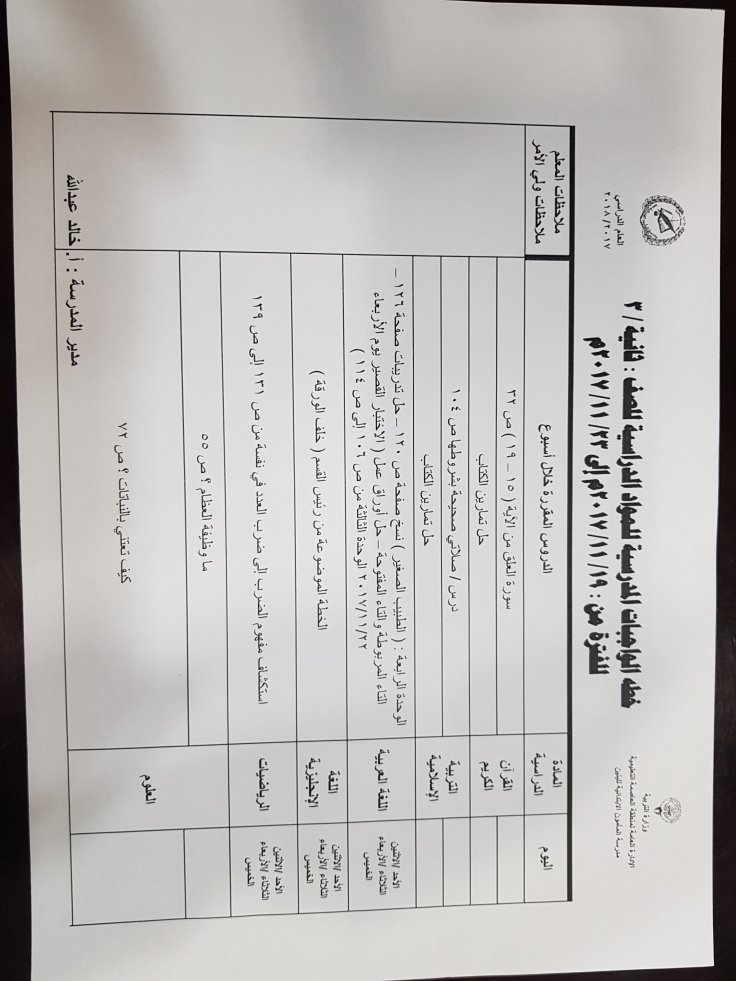 وزارة التربية
الإدارة العامة لمنطقة العاصمة التعليمية
مدرسة المأمون الابتدائية للبنين
العام الدراسي
٢٠١٨/٢٠١٧
خطه الواجبات المدرسية للمواد الدراسية للصف : ثانية / ٣
للفترة من : ٢٠١٧/١١/١٩م إلى ٢٠١٧/١١/٢٣م
اليوم
المادة الدراسية
الدروس المقررة خلال أسبوع
ملاحظات المعلم
ملاحظات ولي الأمر
القرآن الكريم
سورة العلق من الآية ( ١٥ – ١٩ ) ص ٣٢
حل تمارين الكتاب
التربية الإسلامية
درس / صلاتي صحيحة بشروطها ص ١٠٤
حل تمارين الكتاب
الأحد /الاثنين
الثلاثاء /الأربعاء
الخميس
اللغة العربية
الوحدة الرابعة : ( الطبيب الصغير ) نسخ صفحة ص ١٢٠ – حل تدريبات صفحة ١٢٦ –
التاء المربوطة والتاء المفتوحة – حل أوراق عمل ( الاختبار القصير يوم الأربعاء
٢٠١٧/١١/٢٢ الوحدة الثالثة من ص ١٠٦ إلى ص ١١٤ )
الأحد /الاثنين
الثلاثاء /الأربعاء
الخميس
اللغة الإنجليزية
الخطة الموضوعة من رئيس القسم ( خلف الورقة )
الأحد /الاثنين
الثلاثاء /الأربعاء
الخميس
الرياضيات
استكشاف مفهوم الضرب إلى ضرب العدد في نفسة من ص ١٣١ إلى ص ١٣٩
العلوم
ما وظيفة العظام ؟ ص ٥٥
كيف تعتني بالنباتات ؟ ص ٧٢
مدير المدرسة : أ. خالد عبدالله